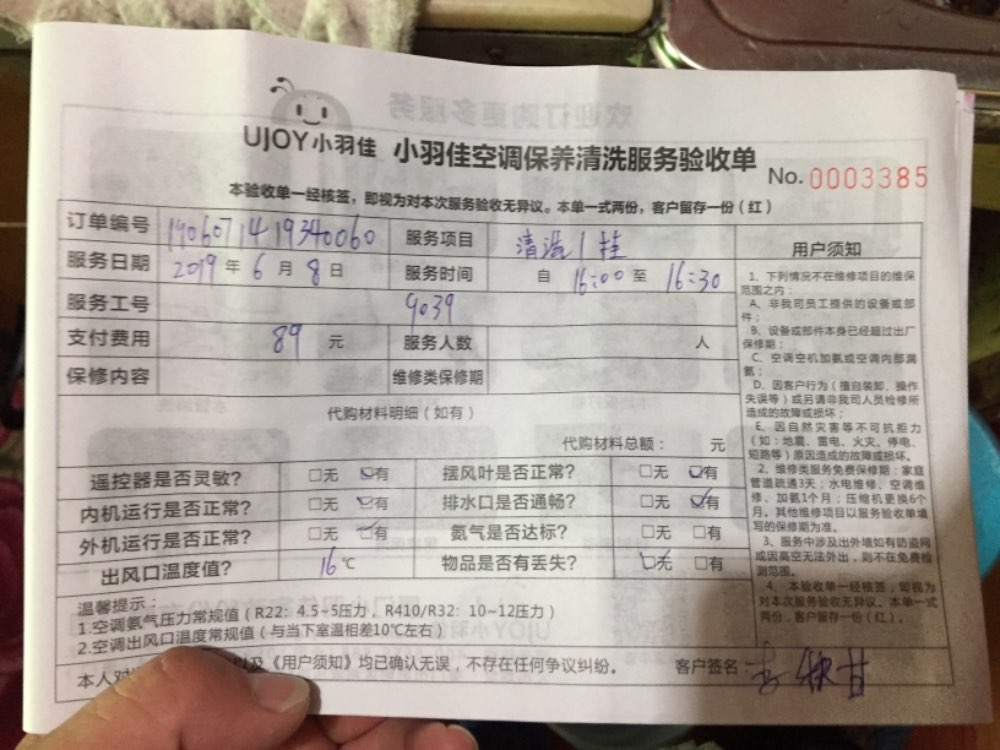 UJOY小羽佳 小羽佳空调保养清洗服务验收单 No. 0003385
本验收单一经核签，即视为对本次服务验收无异议。本单一式两份，客户留存一份（红）
订单编号 1906071419340060 服务项目 清洗1挂
服务日期 2019年6月8日 服务时间 自16:00至16:30
服务工号 9039
支付费用 89元 服务人数 人
保修内容 维修类保修期
代购材料明细（如有）
代购材料总额： 元
遥控器是否灵敏？ □无 □有 摆风叶是否正常？ □无 □有
内机运行是否正常？ □无 □有 排水口是否通畅？ □无 □有
外机运行是否正常？ □无 □有 氨气是否达标？ □无 □有
出风口温度值？ 16℃ 物品是否有丢失？ □无 □有
温馨提示：
1.空调氨气压力常规值（R22：4.5~5压力，R410/R32：10~12压力）
2.空调出风口温度常规值（与当下室温相差10℃左右）
本人对 以及《用户须知》均已确认无误，不存在任何争议纠纷。 客户签名：
用户须知
1、下列情况不在维修项目的维保
范围之内：
A、非我司员工提供的设备或部
件；
B、设备或部件本身已经超过出厂
保修期；
C、空调空机加氨或空调内部漏
氨；
D、因客户行为（擅自装卸、操作
失误等）或另请非我司人员检修所
造成的故障或损坏；
E、因自然灾害等不可抗拒力
（如：地震、雷电、火灾、停电、
短路等）原因造成的故障或损坏。
2、维修类服务免费保修期：家庭
管道疏通3天；水电维修、空调维
修、加氨1个月；压缩机更换6个
月。其他维修项目以服务验收单填
写的保修期为准。
3、服务中涉及出外墙如有防盗网
或因高空无法外出，则不在免费检
测范围。
4、本验收单一经核签，即视为
对本次服务验收无异议。本单一式
两份，客户留存一份（红）。